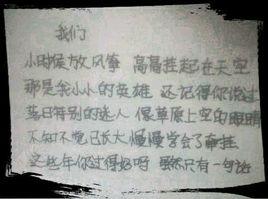 我们
小时候放风筝 高高挂起在天空
那是我小小的英雄 还记得你说过
落日特别的迷人 像草原上空的眼睛
不知不觉已长大 慢慢学会了牵挂
这些年你过得好吗 虽然只有一句话